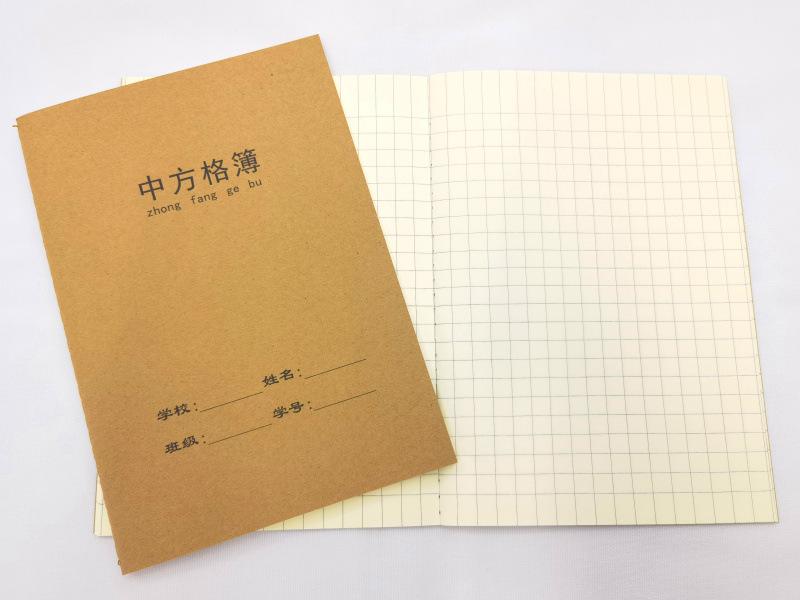 中方格簿
zhong fang ge bu
学校：________ 姓名：________
班级：________ 学号：________